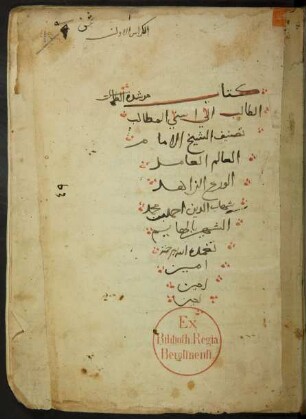 الكراس الاول
كتاب مرشدة
الطالب الي اسني المطالب
تصنيف الشيخ الامام
العالم العامل
الورع الزاهد
شهاب الدين احمد بن محمد
الشهير بالهايم
تغمده الله برحمته
امين
امين
امين
Ex
Biblioth. Regia
Berolinensi.